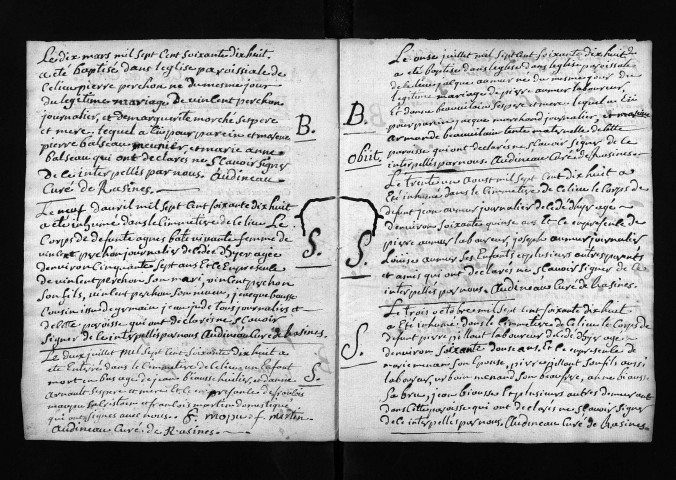 Le dix mars mil sept Cent soixante dix huit
a eté baptisé dans leglise paroissiale de
Ce lieu pierre perchon né du mesme jour
du legitime mariage de vincent perchon
journalier, et de marquerite morché ses pere
et mere. lequel a eu pour parein et mareine
pierre balseau meunier, et marie anne
balseau qui ont declarés ne scavoir signer
de ce interpellés par nous. Audineau
Curé de Rasines.
B.
Le neuf davril mil sept Cent soixante dix huit
a eté inhumé dans le Cimmetiere de Ce lieu Le
Corps de defunte agnes vivante femme de
vincent perchon journalier decedée dhyer agée
denviron Cinquante sept ans Et Ce En presence
de vincent perchon son mari, vincent perchon
son fils, vincent perchon son neveu, jacque
Cousin issu de germain, tous journaliers et
de Cette paroisse qui ont declarés ne scavoir
Signer de Ce interpellés par nous Audineau Curé de Rasines.
S.
Le deux juillet mil sept Cent soixante dix huit a
eté Enterré dans le Cimmetiere de Ce lieu un Enfant
mort en bas age de jean huilier, et danne
Arnault ses pere et mere Et Ce En presence de francois
et francois martin domestique
qui ont signés avec nous. f. martin
Audineau Curé de Rasines.
S.
Le onse juillet mil sept Cent soixante dix huit
a eté Baptisé dans leglise paroissiale
de Ce lieu jacque aumur né du mesme jour du
legitime mariage de pierre aumur laboureur,
Et danne beaumilain ses pere et mere. lequel a Eu
pour parein jacque marchand journalier, et mareine
beaumilain tante maternelle de Cette
paroisse qui ont declarés ne scavoir signer de Ce
interpellés par nous. Audineau Curé de Rasines.
B.
obiit,
Le trente un aoust mil sept Cent dix huit a
eté inhumé dans le Cimmetiere de Ce lieu le Corps de
defunt jean aumur journalier decedé dhyer agé
denviron soixante quinse ans Et Ce En presence de
pierre aumur laboureur, joseph aumur journalier
Louise aumur ses Enfants Et plusieurs autres parents
et amis qui ont declarés ne scavoir signer de Ce
interpellés par nous. Audineau Curé de Rasines.
S.
Le trois octobre mil sept Cent soixante dix huit
a Eté inhumé dans le Cimmetiere de Ce lieu le Corps de
defunt pierre pillault laboureur decedé dhyer agé
denviron soixante douse ans. Et Ce En presence de
marie menan son Epouse, pierre pillault son fils aussi
laboureur, urbain menand son beaufrere, anne
sa bru, jean Et plusieurs autres demeurant
dans Cette paroisse qui ont declarés ne scavoir signer
de Ce interpellés par nous. Audineau Curé de Rasines.
S.